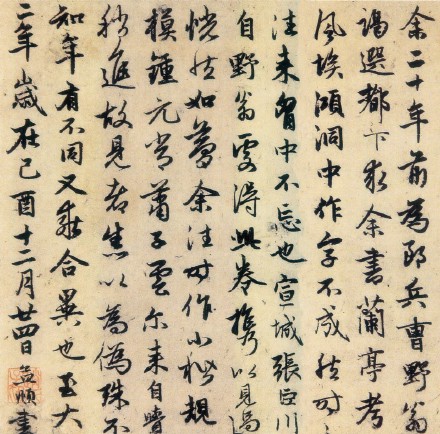 余二十年前為郎兵曹野翁
謁選都下求余書蘭亭考
風埃澒洞中作字不成然時〻
往來胸中不忘也宣城張巨川
自野翁處得此卷攜以見過
恍然如夢余往時作小楷規
模鍾元常蕭子雲爾來自覺
稍進故見者悉以為偽殊不
知年有不同又乖合異也至大
二年歲在己酉十二月廿四日孟頫書